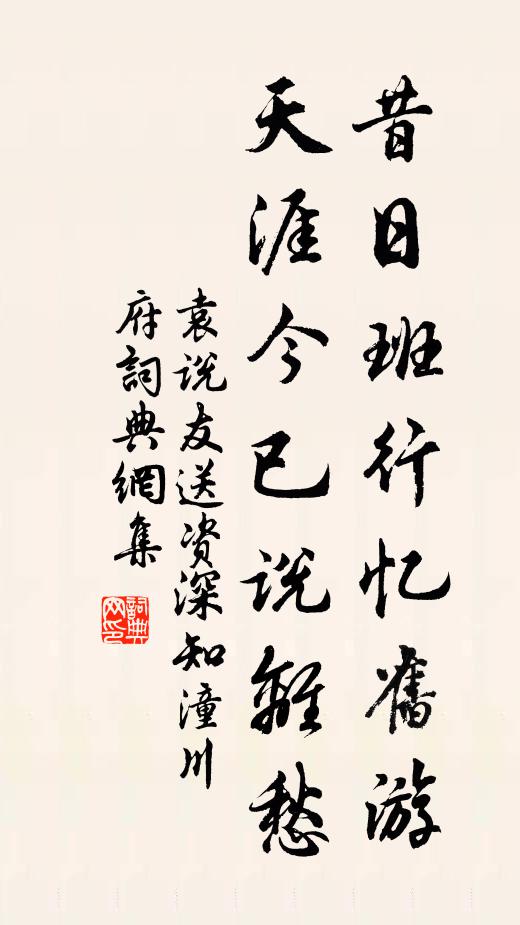 昔日班行忆舊游
天涯今已说離愁
袁说友送资深知潼川
府詞典網集
詞典
网印